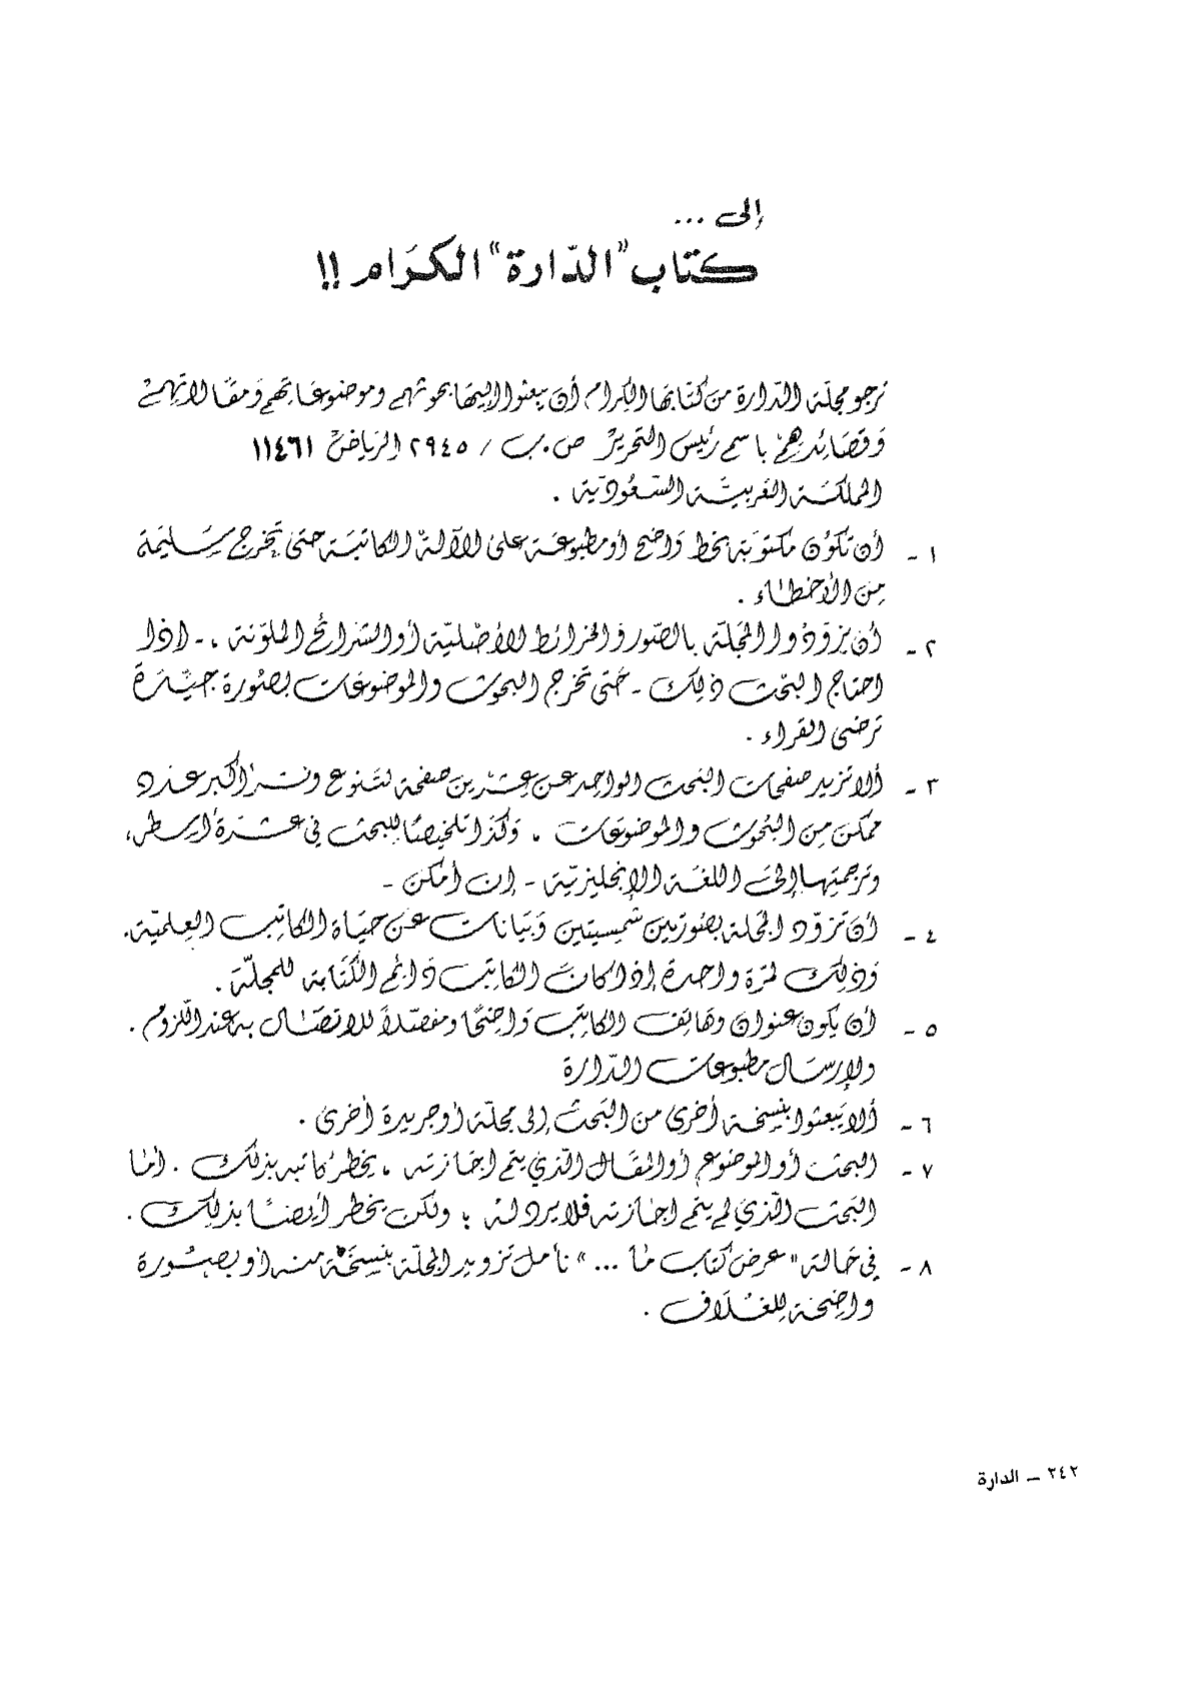 إلى ...
كتاب "الدّارة" الكرَام !!
نرجو مجلة الدّارة من كُتّابها الكِرام أن يبعثوا إليهَا بحوثهم وموضوعَاتهم وَمقَالاتهمْ
وَقصَائدهمْ باسم رئيس التحرير ص.ب / ٢٩٤٥ الريَاض ١١٤٦١
المملكَة العَربيَّة السَّعُوديّة .
١ - أن تكوُن مكتوبَة بخط وَاضح أو مطبوعَة على الآلة الكاتبَة حتىَ تخرج سَليمَة
مِن الأخطَاء .
٢ - أن يزوّدُوا المجَلة بالصّور وَالخرائط الأصْليّة أو الشرائح الملوّنة ، - إذا
احتاج البحَث ذلِك - حَتى تخرج البحوث والموضوعَات بصُورة جيّدَة
ترضى القراء .
٣ - ألا تزيد صفحات البَحث الواحِد عَن عِشرين صفحَة لتنوع ونشر أكبر عَدد
ممكن مِن البُحوث والموضوَعات . وَكذا تلخيصًا للبحث في عَشرَة أسطر،
وترجمتهَا إلىَ اللغَة الإنجليزيّة - إن أمكن -
٤ - أن تزوّد المجَلة بصُورتين شمِسيتين وَبيَانات عَن حيَاة الكاتِب العِلميّة.
وَذلِك لمرَة واحدة إذا كانَ الكاتِبَ دَائم الكتَابة للمجلّة .
٥ - أن يكون عنوان وهَاتف الكاتِب وَاضحًا ومفصّلاً للاتصَال به عند اللّزوم .
ولإرسَال مطبوعات الدّارة
٦ - ألا يَبعثوا بنسِخة أخرى من البَحث إلى مجلّة أو جريدة أخرىَ .
٧ - البحث أو الموضوع أو المقَال الّذي يتم إجَازته ، يخطر كاتبه بذلك . أمَا
البَحث الّذي لم يتم إجَازته فلا يرد لهُ ؛ ولكن يخطر أيضًا بذلِك .
٨ - في حَالة " عرض كتاب مَا ... " نأمل تزويد المجلّة بنسِخَة منه أو بصُورة
واضِحَة لِلغُلَاف .
٢٤٢ – الدارة